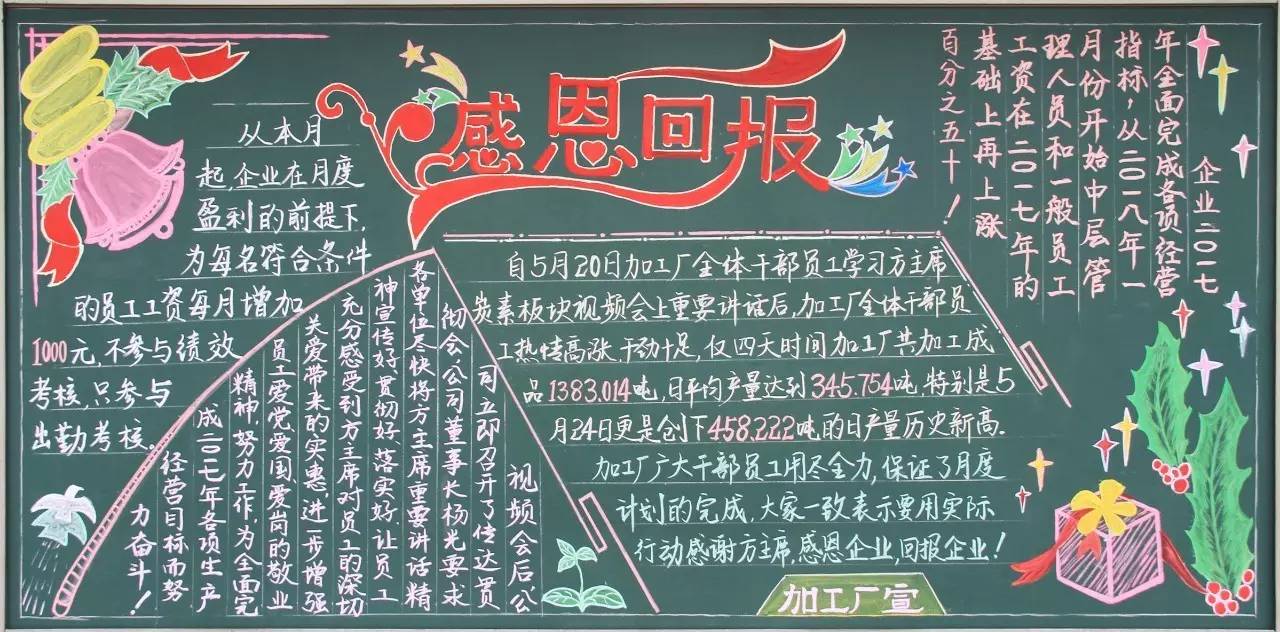 感恩回报
从本月
起,企业在月度
盈利的前提下,
为每名符合条件
的员工工资每月增加
1000元,不参与绩效
考核,只参与
出勤考核.
视频会后公
司立即召开了传达贯
彻会,公司董事长杨光要求
各单位尽快将方主席重要讲话精
神宣传好、贯彻好、落实好,让员工
充分感受到方主席对员工的深切
关爱带来的实惠,进一步增强
员工爱党、爱国、爱岗的敬业
精神,努力工作,为全面完
成二〇一七年各项生产
经营目标而努
力奋斗!
自5月20日加工厂全体干部员工学习方主席
炭素板块视频会上重要讲话后,加工厂全体干部员
工热情高涨,干劲十足,仅四天时间加工厂共加工成
品1383.014吨,日平均产量达到345.754吨,特别是5
月24日更是创下458.222吨的日产量历史新高.
加工厂广大干部员工用尽全力,保证了月度
计划的完成,大家一致表示要用实际
行动感谢方主席,感恩企业,回报企业!
企业二〇一七
年全面完成各项经营
指标,从二〇一八年一
月份开始中层管
理人员和一般员工
工资在二〇一七年的
基础上再上涨
百分之五十!
加工厂宣